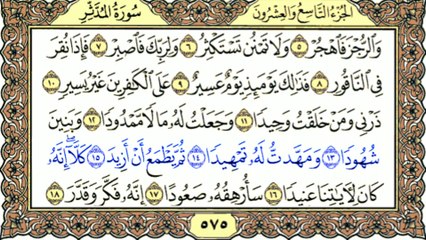 سُورَةُ المُدَّثِّر الجُزءُ التَّاسِعُ وَالعِشْرُونَ
وَالرُّجْزَ فَاهْجُرْ ٥ وَلَا تَمْنُن تَسْتَكْثِرُ ٦ وَلِرَبِّكَ فَاصْبِرْ ٧ فَإِذَا نُقِرَ
فِي النَّاقُورِ ٨ فَذَٰلِكَ يَوْمَئِذٍ يَوْمٌ عَسِيرٌ ٩ عَلَى الْكَٰفِرِينَ غَيْرُ يَسِيرٍ ١٠
ذَرْنِي وَمَنْ خَلَقْتُ وَحِيدًا ١١ وَجَعَلْتُ لَهُ مَالًا مَّمْدُودًا ١٢ وَبَنِينَ
شُهُودًا ١٣ وَمَهَّدتُّ لَهُ تَمْهِيدًا ١٤ ثُمَّ يَطْمَعُ أَنْ أَزِيدَ ١٥ كَلَّا إِنَّهُ
كَانَ لِآيَٰتِنَا عَنِيدًا ١٦ سَأُرْهِقُهُ صَعُودًا ١٧ إِنَّهُ فَكَّرَ وَقَدَّرَ ١٨
٥٧٥